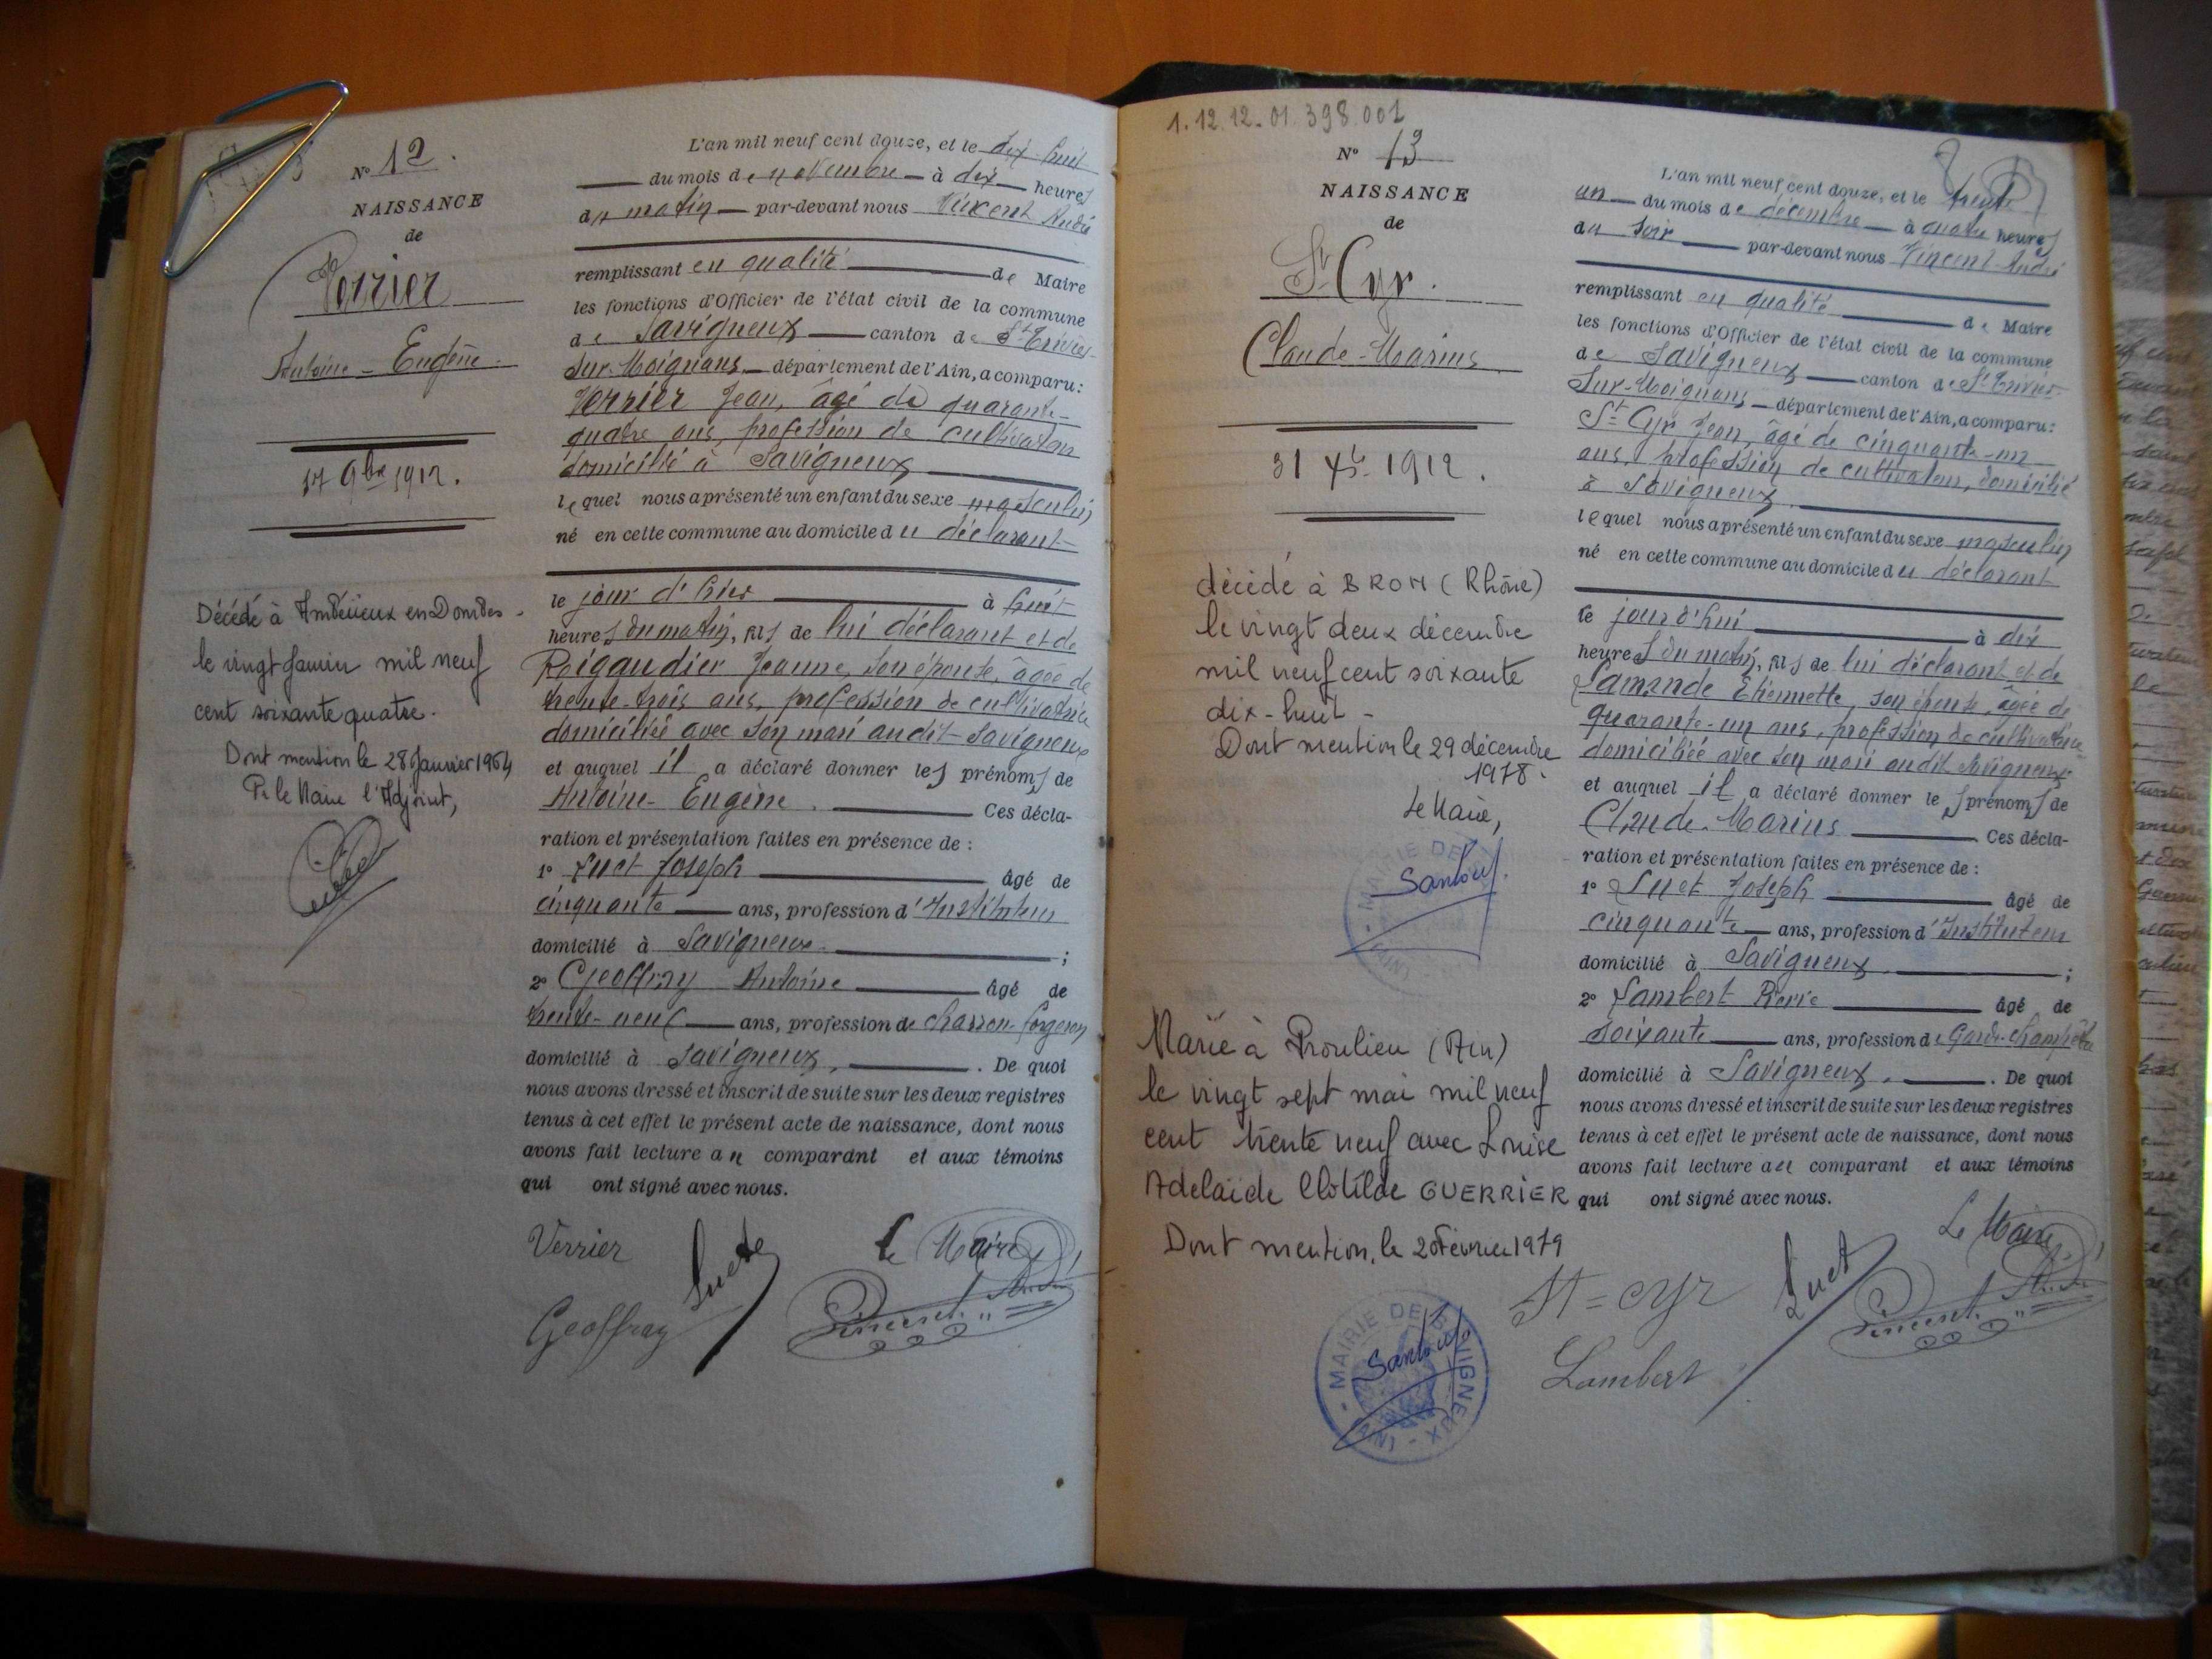 Nº 12.
NAISSANCE
de
Verrier
Antoine-Eugène.
17 9bre 1912.
Décédé à Ambérieux en Dombes
le vingt Janvier mil neuf
cent soixante quatre.
Dont mention le 28 Janvier 1964
Pr le Maire l'Adjoint,
L'an mil neuf cent douze, et le dix-huit
du mois de novembre à dix heures
du matin par-devant nous Vincent André
remplissant en qualité de Maire
les fonctions d'Officier de l'état civil de la commune
de Savigneux canton de St Trivier-
Sur-Moignans département de l'Ain, a comparu:
Verrier Jean, âgé de quarante-
quatre ans, profession de cultivateur
domicilié à Savigneux
lequel nous a présenté un enfant du sexe masculin
né en cette commune au domicile du déclarant
le jour d'hier à huit
heures du matin, fils de lui déclarant et de
Roigaudier Jeanne, son épouse, âgée de
trente-trois ans, profession de cultivatrice
domiciliée avec son mari audit Savigneux
et auquel il a déclaré donner les prénoms de
Antoine-Eugène. Ces décla-
ration et présentation faites en présence de :
1º Luet Joseph âgé de
cinquante ans, profession d'Instituteur
domicilié à Savigneux ;
2º Geoffray Antoine âgé de
trente-neuf ans, profession de charron-forgeron
domicilié à Savigneux, . De quoi
nous avons dressé et inscrit de suite sur les deux registres
tenus à cet effet le présent acte de naissance, dont nous
avons fait lecture au comparant et aux témoins
qui ont signé avec nous.
Verrier Luet Le Maire
Geoffray Vincent André
1.12.12.01.398.001
Nº 13
NAISSANCE
de
St Cyr.
Claude-Marius
31 Xbre 1912.
décédé à BRON (Rhône)
le vingt deux décembre
mil neuf cent soixante
dix-huit -
Dont mention le 29 décembre
1978.
Le Maire,
MAIRIE DE
(AIN)
Marié à Proulieu (Ain)
le vingt sept mai mil neuf
cent trente neuf avec Louise
Adelaïde Clotilde GUERRIER
Dont mention, le 20 Février 1979
MAIRIE DE SAVIGNEUX - (AIN) -
L'an mil neuf cent douze, et le trente
un du mois de décembre à quatre heures
du soir par-devant nous Vincent André
remplissant en qualité de Maire
les fonctions d'Officier de l'état civil de la commune
de Savigneux canton de St Trivier-
Sur-Moignans département de l'Ain, a comparu:
St Cyr Jean, âgé de cinquante-un
ans, profession de cultivateur, domicilié
à Savigneux.
lequel nous a présenté un enfant du sexe masculin
né en cette commune au domicile du déclarant
le jourd'hui à dix
heures du matin, fils de lui déclarant et de
Lamande Etiennette, son épouse, âgée de
quarante-un ans, profession de cultivatrice
domiciliée avec son mari audit Savigneux
et auquel il a déclaré donner les prénoms de
Claude-Marius Ces décla-
ration et présentation faites en présence de :
1º Luet Joseph âgé de
cinquante ans, profession d'Instituteur
domicilié à Savigneux ;
2º Lambert Pierre âgé de
soixante ans, profession de Garde-champêtre
domicilié à Savigneux. . De quoi
nous avons dressé et inscrit de suite sur les deux registres
tenus à cet effet le présent acte de naissance, dont nous
avons fait lecture au comparant et aux témoins
qui ont signé avec nous.
St=cyr Luet Le Maire
Lambert Vincent André